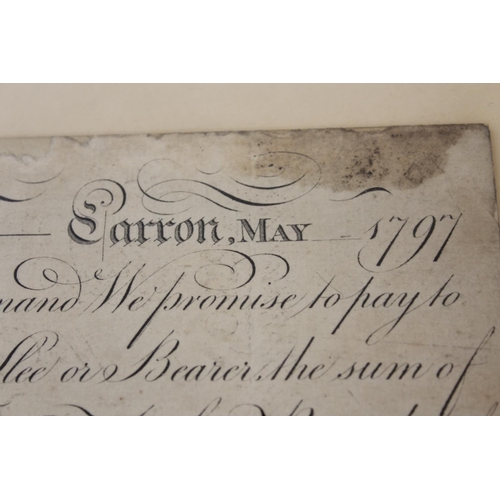 Carron, MAY 1797
mand We promise to pay to
llee or Bearer, the sum of